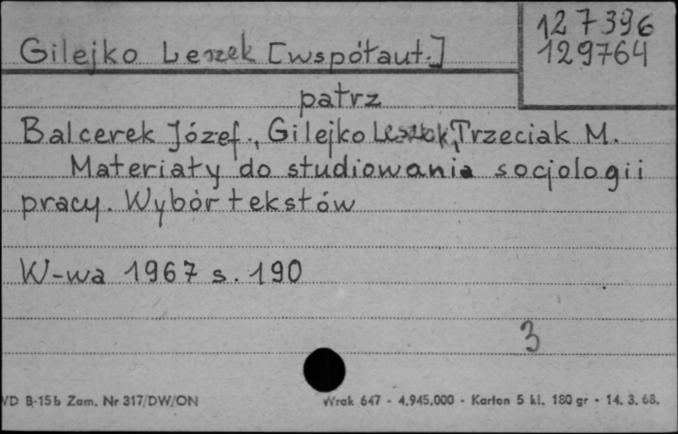 127396
Gilejko Leszek [współaut.]
129764
patrz
Balcerek Józef., Gilejko Leszek, Trzeciak M.
Materiały do studiowania socjologii
pracy. Wybór tekstów
W-wa 1967 s. 190
3
VD B-15b Zam. Nr 317/DW/ON Wrak 647 - 4.945.000 - Karton 5 kl. 180 gr - 14. 3. 68.